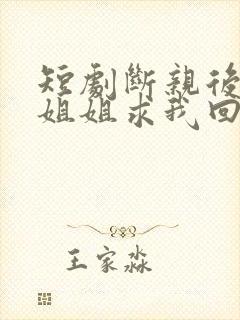 短劇斷親後
姐姐求我回
王家淼